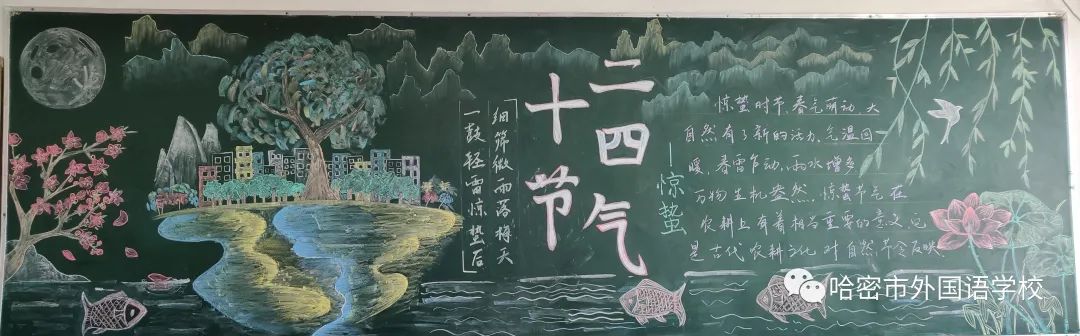 二十四节气
细筛微雨落梅天
一鼓轻雷惊蛰后
—惊蛰
惊蛰时节、春气萌动,大
自然有了新的活力,气温回
暖,春雷乍动,雨水增多
万物生机盎然,惊蛰节气在
农耕上有着相当重要的意义,它
是古代农耕文化对自然节令反映.
哈密市外国语学校